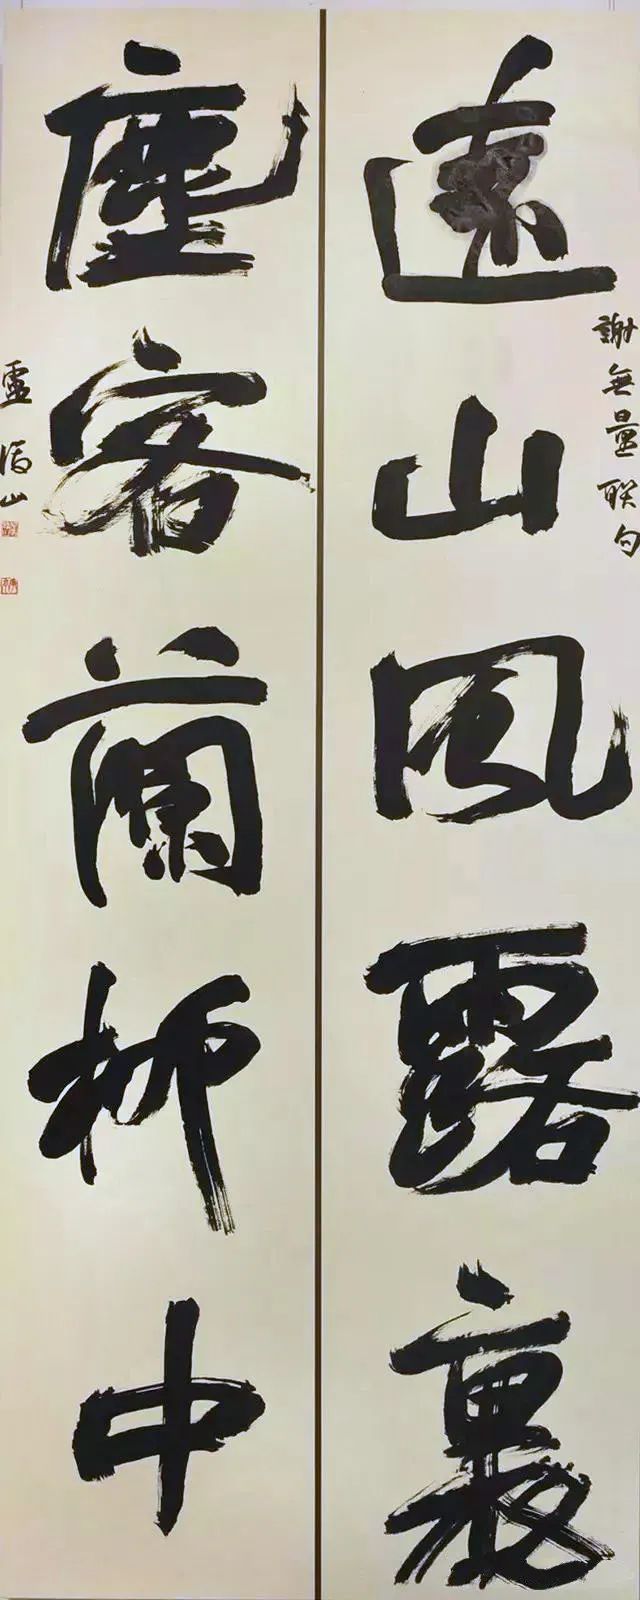 謝無量聯句
遠山風露裏
塵客蘭柳中
盧山